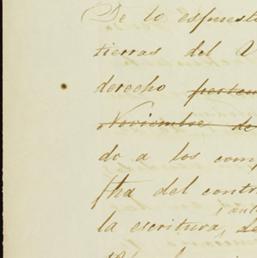 De lo espuest
tierras del V
derecho perten
Noviembre de
do a los com
fha del contr
la escritura, de